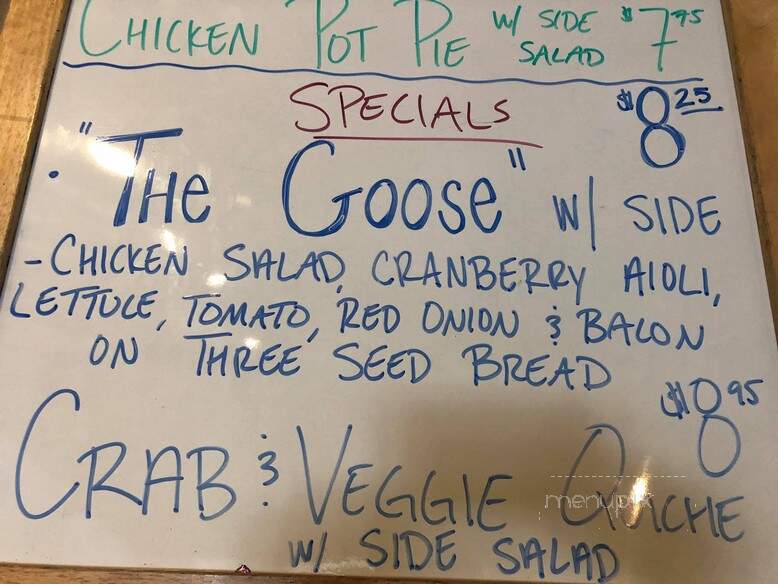 CHICKEN POT PIE W/ SIDE SALAD $7.95
SPECIALS
$8.25
• "THE GOOSE" W/ SIDE
- CHICKEN SALAD, CRANBERRY AIOLI,
LETTUCE, TOMATO, RED ONION & BACON
ON THREE SEED BREAD
$8.95
CRAB & VEGGIE QUICHE
W/ SIDE SALAD
menupix